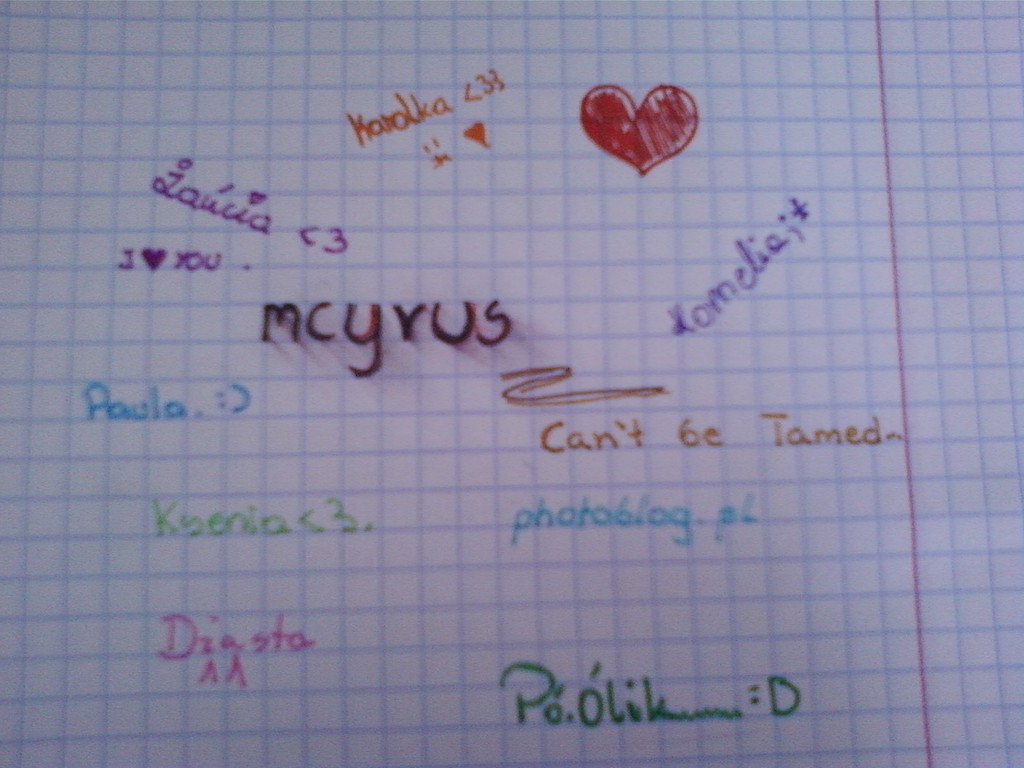 Karolka <33
:*
Żańcia <3
I ♥ YOU .
Kornelia;*
mcyrus
Paula. :)
Can't be Tamed~
Ksenia <3.
photoblog.pl
Dżasta
^^
Pó.Ólik......:D